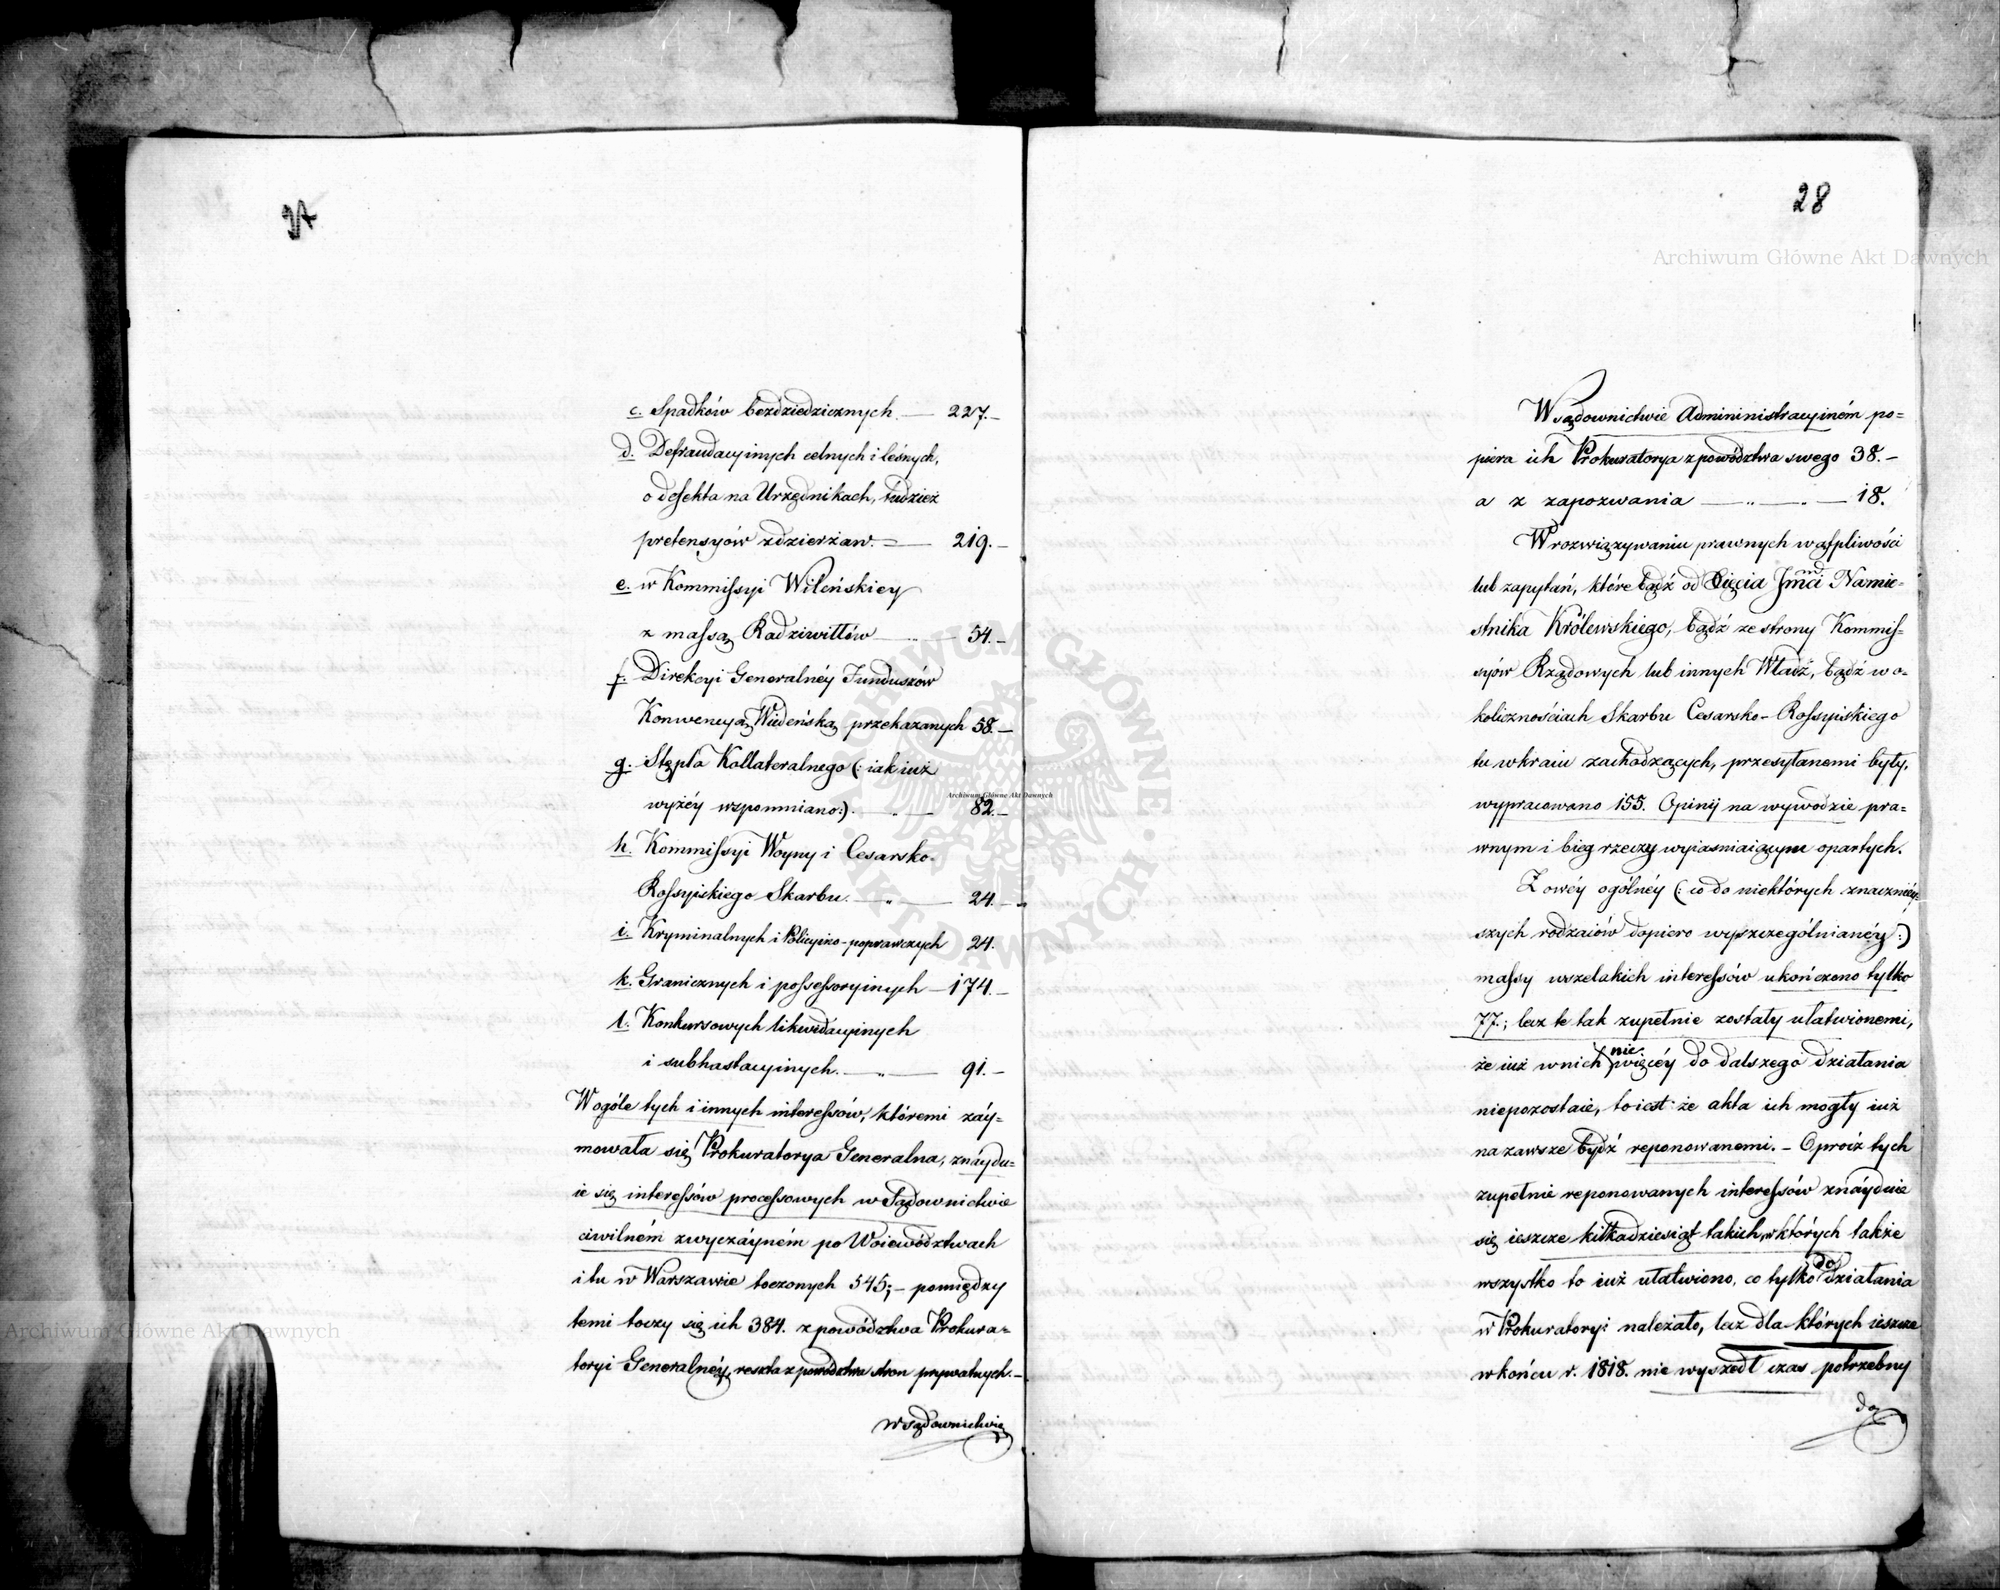 27
c. Spadków bezdziedzicznych — 227.—
d. Defraudacyinych celnych i leśnych,
o defekta na Urzędnikach, tudzież
pretensyów zdzierżaw. — 219.—
e. w Kommissyi Wileńskiey
z massą Radziwiłłów — 54.—
f. Direkcyi Generalnéy Funduszów
Konwencyą Wiedeńską przekazanych 58.—
g. Stępla Kollateralnego (: iak iuż
wyżéy wspomniano:). — 82.—
h. Kommissyi Woyny i Cesarsko-
Rossyiskiego Skarbu. — 24.—
i. Kryminalnych i Policyino-poprawczych 24.
k. Granicznych i possessoryinych — 174.—
l. Konkursowych likwidacyinych
i subhastacyinych. — 91.—
W ogóle tych i innych interessów, któremi záy=
mowała się Prokuratorya Generalna, znáydu=
ie się interessów processowych w Sądownictwie
ciwilném zwyczáyném po Woiewództwach
i tu w Warszawie toczonych 545;— pomiędzy
temi toczy się ich 384. z powództwa Prokura=
toryi Generalnéy, reszta z powództwa stron prywatnych.—
w Sądownictwie
28
W sądownictwie Admininistracyiném po=
piera ich Prokuratorya z powództwa swego 38.—
a z zapozwania — 18.
W rozwiązywaniu prawnych wątpliwości
lub zapytań, które bądź od Xięcia Jmci Namie=
stnika Królewskiego, bądź ze strony Kommis=
syów Rządowych lub innych Władz, bądź w o=
kolicznościach Skarbu Cesarsko-Rossyiskiego
tu w kraiu zachodzących, przesyłanemi były,
wypracowano 155. Opinij na wywodzie pra=
wnym i bieg rzeczy wyiasniaiącym opartych.
Z owéy ogólnéy (: co do niektórych znaczniey=
szych rodzaiów dopiero wyszczególnianéy :)
massy wszelakich interessów ukończono tylko
77.; lecz te tak zupełnie zostały ułatwionemi,
że iuż w nich nie więcéy do dalszego działania
niepozostaie, to iest: że akta ich mogły iuż
na zawsze bydź reponowanemi. — Oprócz tych
zupełnie reponowanych interessów znáyduie
się ieszcze kilkadziesiąt takich, w których także
wszystko to iuż ułatwiono, co tylko do działania
w Prokuratoryi należało, lecz dla których ieszcze
w końcu r. 1818. nie wyszedł czas potrzebny
do
Archiwum Główne Akt Dawnych
Archiwum Główne Akt Dawnych
Archiwum Główne Akt Dawnych
ARCHIWUM GŁÓWNE AKT DAWNYCH